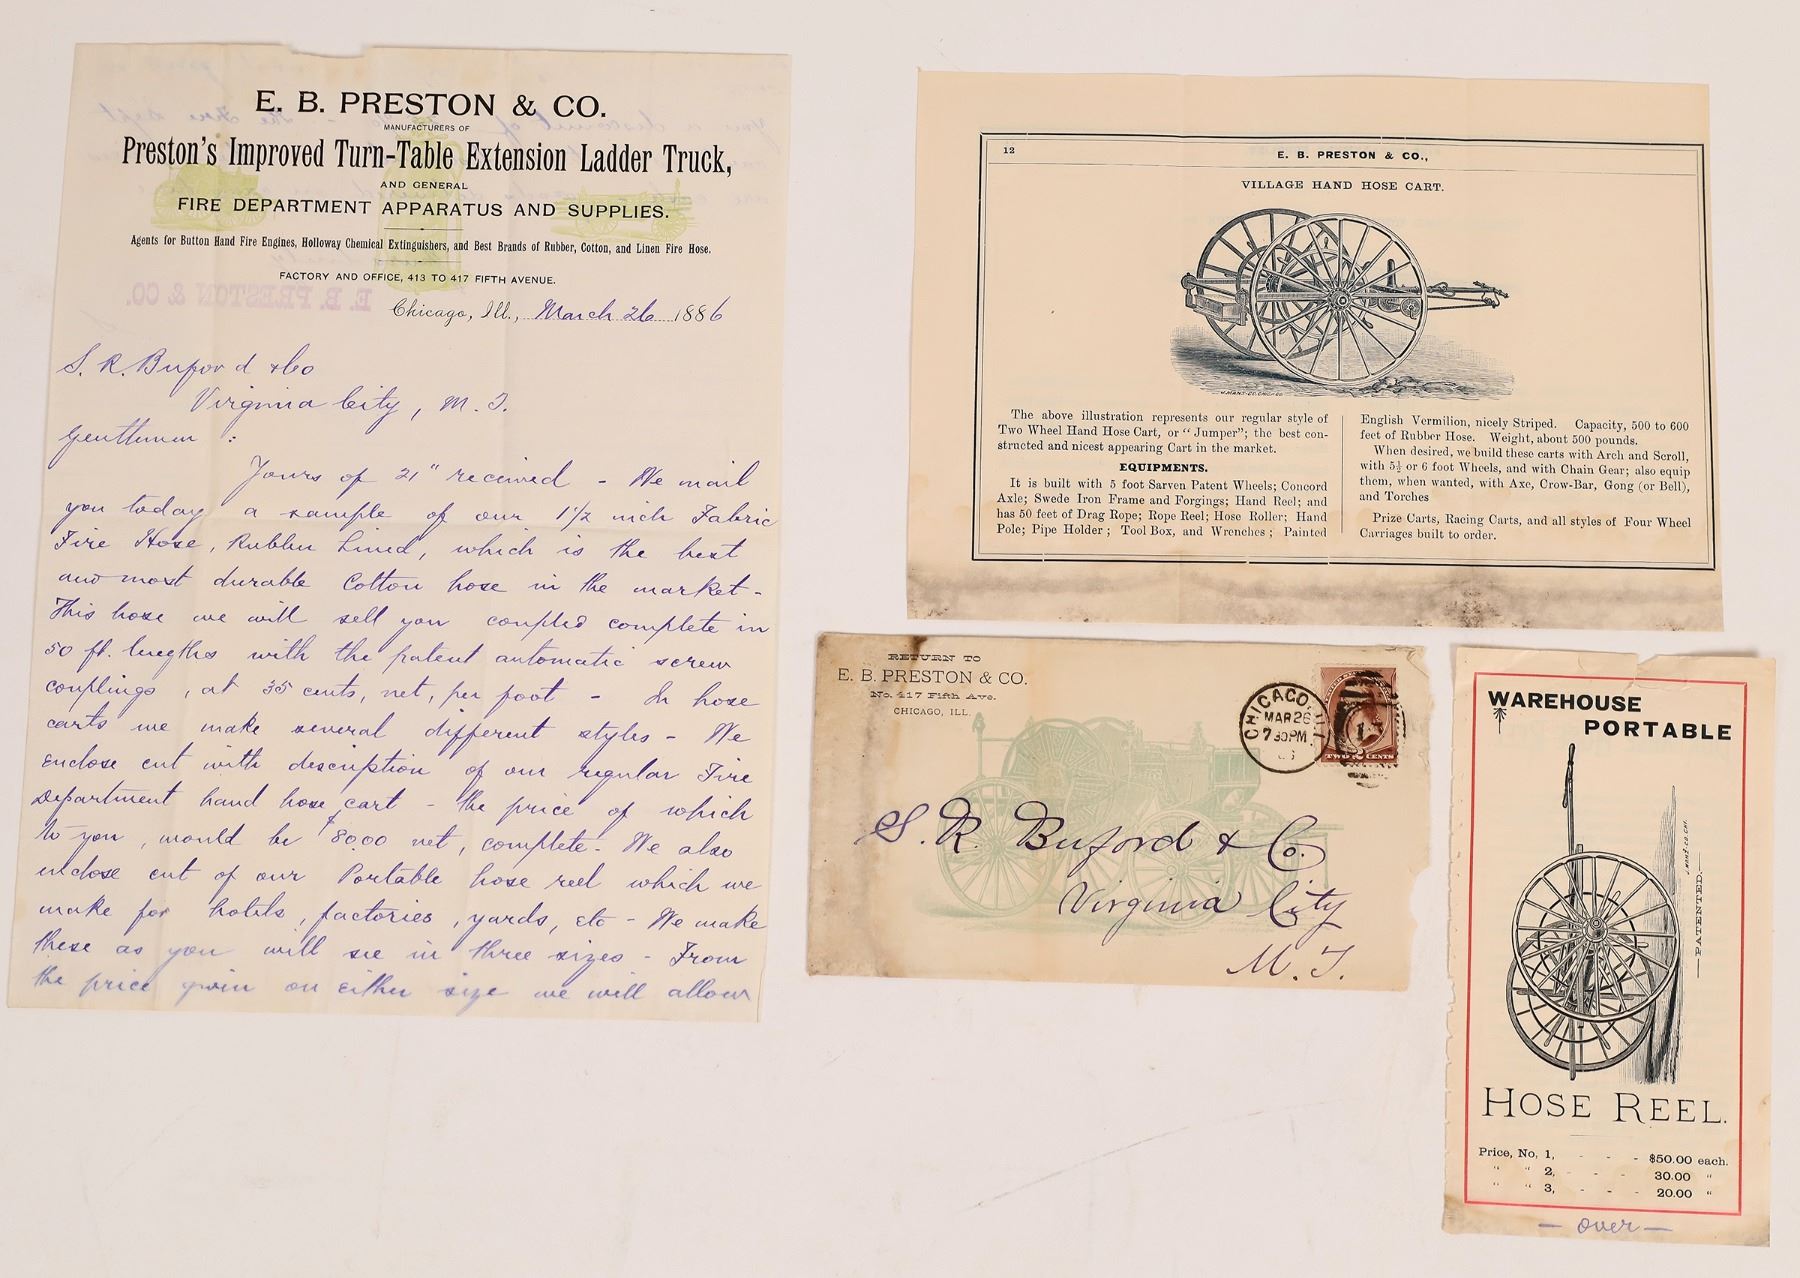 E. B. PRESTON & CO.
MANUFACTURERS OF
Preston's Improved Turn-Table Extension Ladder Truck,
AND GENERAL
FIRE DEPARTMENT APPARATUS AND SUPPLIES.
Agents for Button Hand Fire Engines, Holloway Chemical Extinguishers, and Best Brands of Rubber, Cotton, and Linen Fire Hose.
FACTORY AND OFFICE, 413 TO 417 FIFTH AVENUE.
E. B. PRESTON & CO.
Chicago, Ill., March 26 1886
S. R. Buford & Co
Virginia City, M. T.
Gentlemen :
Yours of 21" received - We mail
you today a sample of our 1 1/2 inch Fabric
Fire Hose, Rubber Lined, which is the best
and most durable Cotton hose in the market -
This hose we will sell you coupled complete in
50 ft. lengths with the patent automatic screw
couplings, at 35 cents, net, per foot - In hose
carts we make several different styles - We
enclose cut with description of our regular Fire
Department hand hose cart - the price of which
to you, would be $80.00 net, complete - We also
enclose cut of our Portable hose reel which we
make for hotels, factories, yards, etc - We make
these as you will see in three sizes - From
the price given on either size we will allow
12
E. B. PRESTON & CO.,
VILLAGE HAND HOSE CART.
The above illustration represents our regular style of
Two Wheel Hand Hose Cart, or "Jumper"; the best con-
structed and nicest appearing Cart in the market.
EQUIPMENTS.
It is built with 5 foot Sarven Patent Wheels; Concord
Axle; Swede Iron Frame and Forgings; Hand Reel; and
has 50 feet of Drag Rope; Rope Reel; Hose Roller; Hand
Pole; Pipe Holder; Tool Box, and Wrenches; Painted
English Vermilion, nicely Striped. Capacity, 500 to 600
feet of Rubber Hose. Weight, about 500 pounds.
When desired, we build these carts with Arch and Scroll,
with 5½ or 6 foot Wheels, and with Chain Gear; also equip
them, when wanted, with Axe, Crow-Bar, Gong (or Bell),
and Torches
Prize Carts, Racing Carts, and all styles of Four Wheel
Carriages built to order.
RETURN TO
E. B. PRESTON & CO.
No. 417 Fifth Ave.
CHICAGO, ILL.
CHICAGO, ILL.
MAR 26
7 30 PM
TWO CENTS
S. R. Buford & Co.
Virginia City
M. T.
WAREHOUSE
PORTABLE
PATENTED.
HOSE REEL.
Price, No. 1, - - - $50.00 each.
" " 2, - - - 30.00 "
" " 3, - - - 20.00 "
- over -